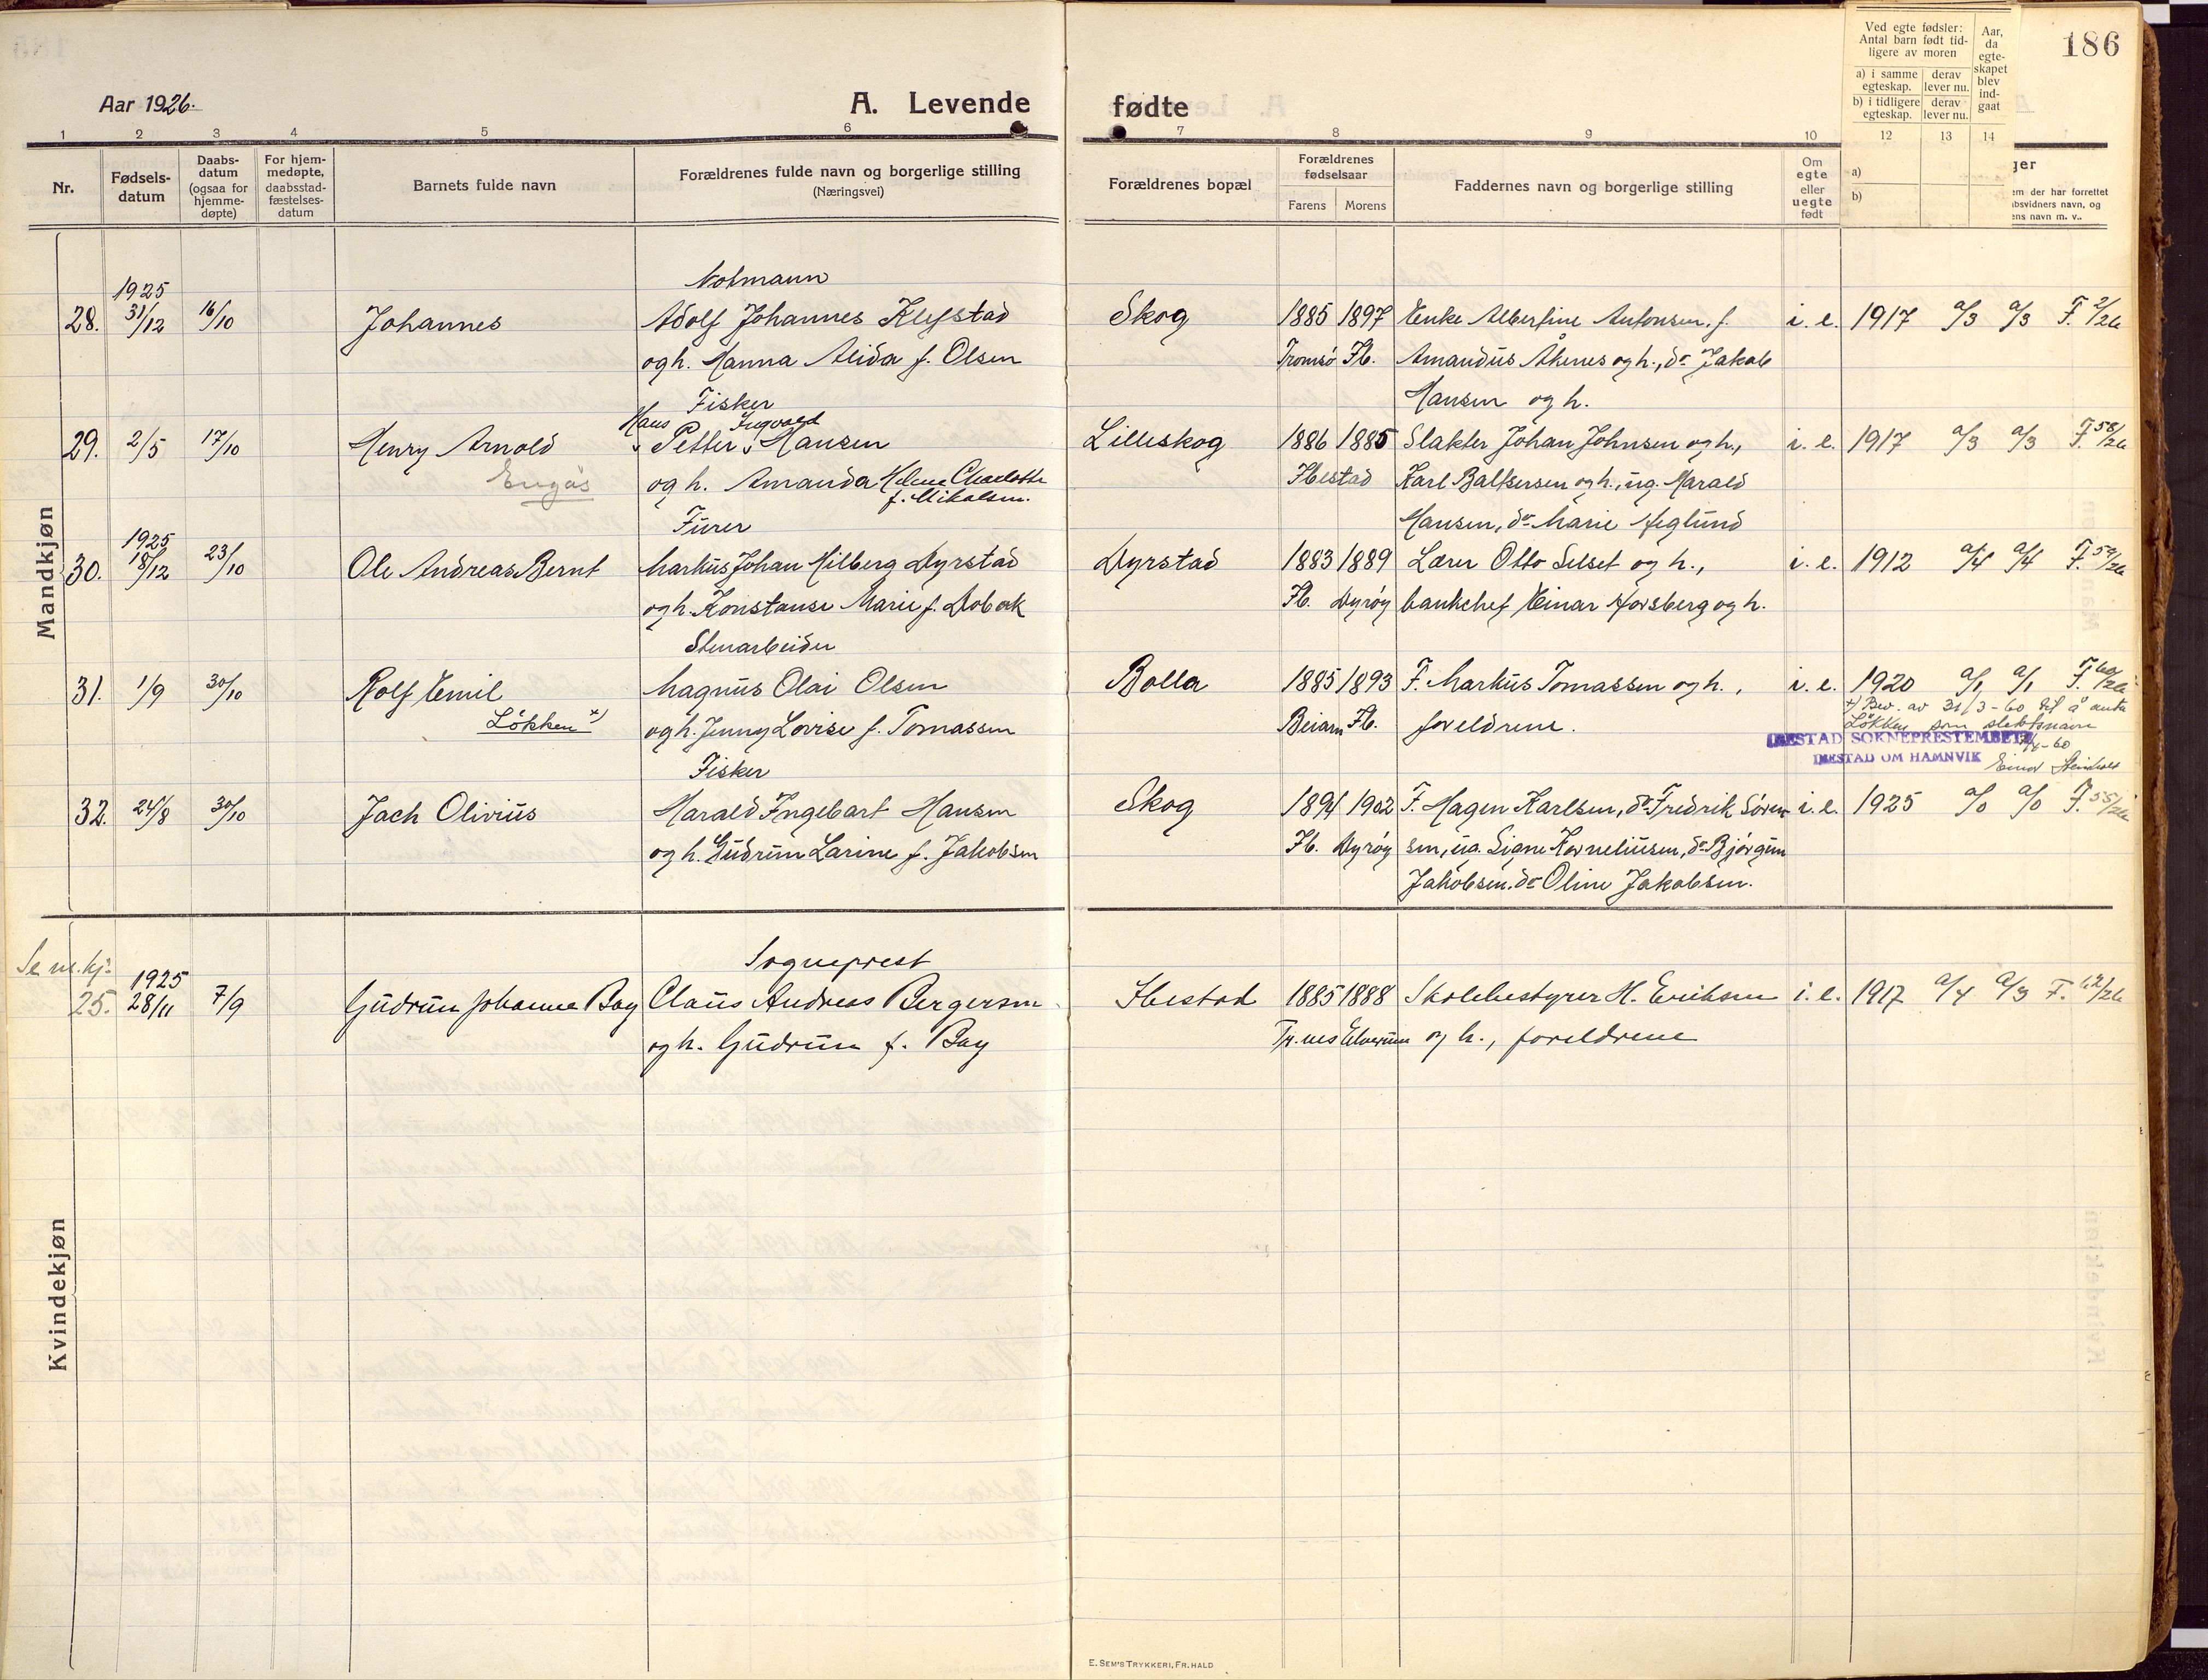 186
Aar 1926.
A. Levende fødte
Ved egte fødsler: Antal barn født tidligere av moren
a) i samme egteskap. derav lever nu.
b) i tidligere egteskap. derav lever nu.
Aar, da egteskapet blev indgaat
1 2 3 4 5 6 7 8 9 10 12 13 14
Nr.
Fødselsdatum
Daabsdatum (ogsaa for hjemmedøpte)
For hjemmedøpte, daabsstadfæstelsesdatum
Barnets fulde navn
Forældrenes fulde navn og borgerlige stilling (Næringsvei)
Forældrenes bopæl
Forældrenes fødselsaar
Farens Morens
Faddernes navn og borgerlige stilling
Om egte eller uegte født
a)
b)
ger
em der har forrettet
bsvidners navn, og
ens navn m. v..
Mandkjøn
1925 Notmann
28. 31/12 16/10 Johannes Adolf Johannes Klefstad Skog 1885 1897 Enke Albertine Antonsen, f. i. e. 1917 a/3 a/3 F. 2/26
og h. Hanna Alida f. Olsen Tromsø Ib. Amandus Åkenes og h., do Jakob
Fisker Hansen og h.
Hans Ingvald
29. 2/5 17/10 Henry Arnold Petter Hansen Lilleskog 1886 1885 Slakter Johan Johnsen og h., i. e. 1917 a/3 a/3 F. 58/26
Engås og h. Amanda Helene Charlotte f. Mikalsen. Ibestad Karl Baltsersen og h., ug. Harald
Furer Hansen, do Marie Høglund
1925
30. 18/12 23/10 Ole Andreas Bernt Markus Johan Hilberg Dyrstad Dyrstad 1883 1889 Lærer Otto Selset og h., i. e. 1912 a/4 a/4 F. 59/26
og h. Konstanse Marie f. Ib. Dyrøy bankchef Einar Forsberg og h.
Stenarbeider
31. 1/9 30/10 Rolf Emil Magnus Olai Olsen Bolla 1885 1893 F. Markus Tomassen og h., i. e. 1920 a/1 a/1 F. 60/26
Løkken x) og h. Jenny Lovise f. Tomassen Beiarn Ib. foreldrene.
x) Bev. av 31/3-60 til å anta
Løkken som slektsnavn
IBESTAD SOKNEPRESTEMBETE
IBESTAD OM HAMNVIK
Fisker
32. 24/8 30/10 Jach Olivius Harald Ingebart Hansen Skog 1894 1902 F. Hagen Karlsen, do Fredrik Søren- i. e. 1925 a/0 a/0 F. 55/26
og h. Gudrun Larine f. Jakobsen Ib. Dyrøy sen, ug. Signe Korneliusen, do Bjørgun
Jakobsen, do Oline Jakobsen.
Kvindekjøn
Se m.kj.
1925 Sogneprest
25. 28/11 7/9 Gudrun Johanne Bay Claus Andreas Bergersen Ibestad 1885 1888 Skolebestyrer H. Eriksen i. e. 1917 a/4 a/3 F. 62/26
og h. Gudrun f. Bay Elverum og h., foreldrene
E. SEM'S TRYKKERI, FR.HALD